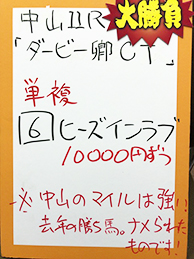 大勝負
中山11R
「ダービー卿CT」
単複
6 ヒーズインラブ
10000円ずつ
※中山のマイルは強い
去年の勝ち馬。ナメられた
ものです!